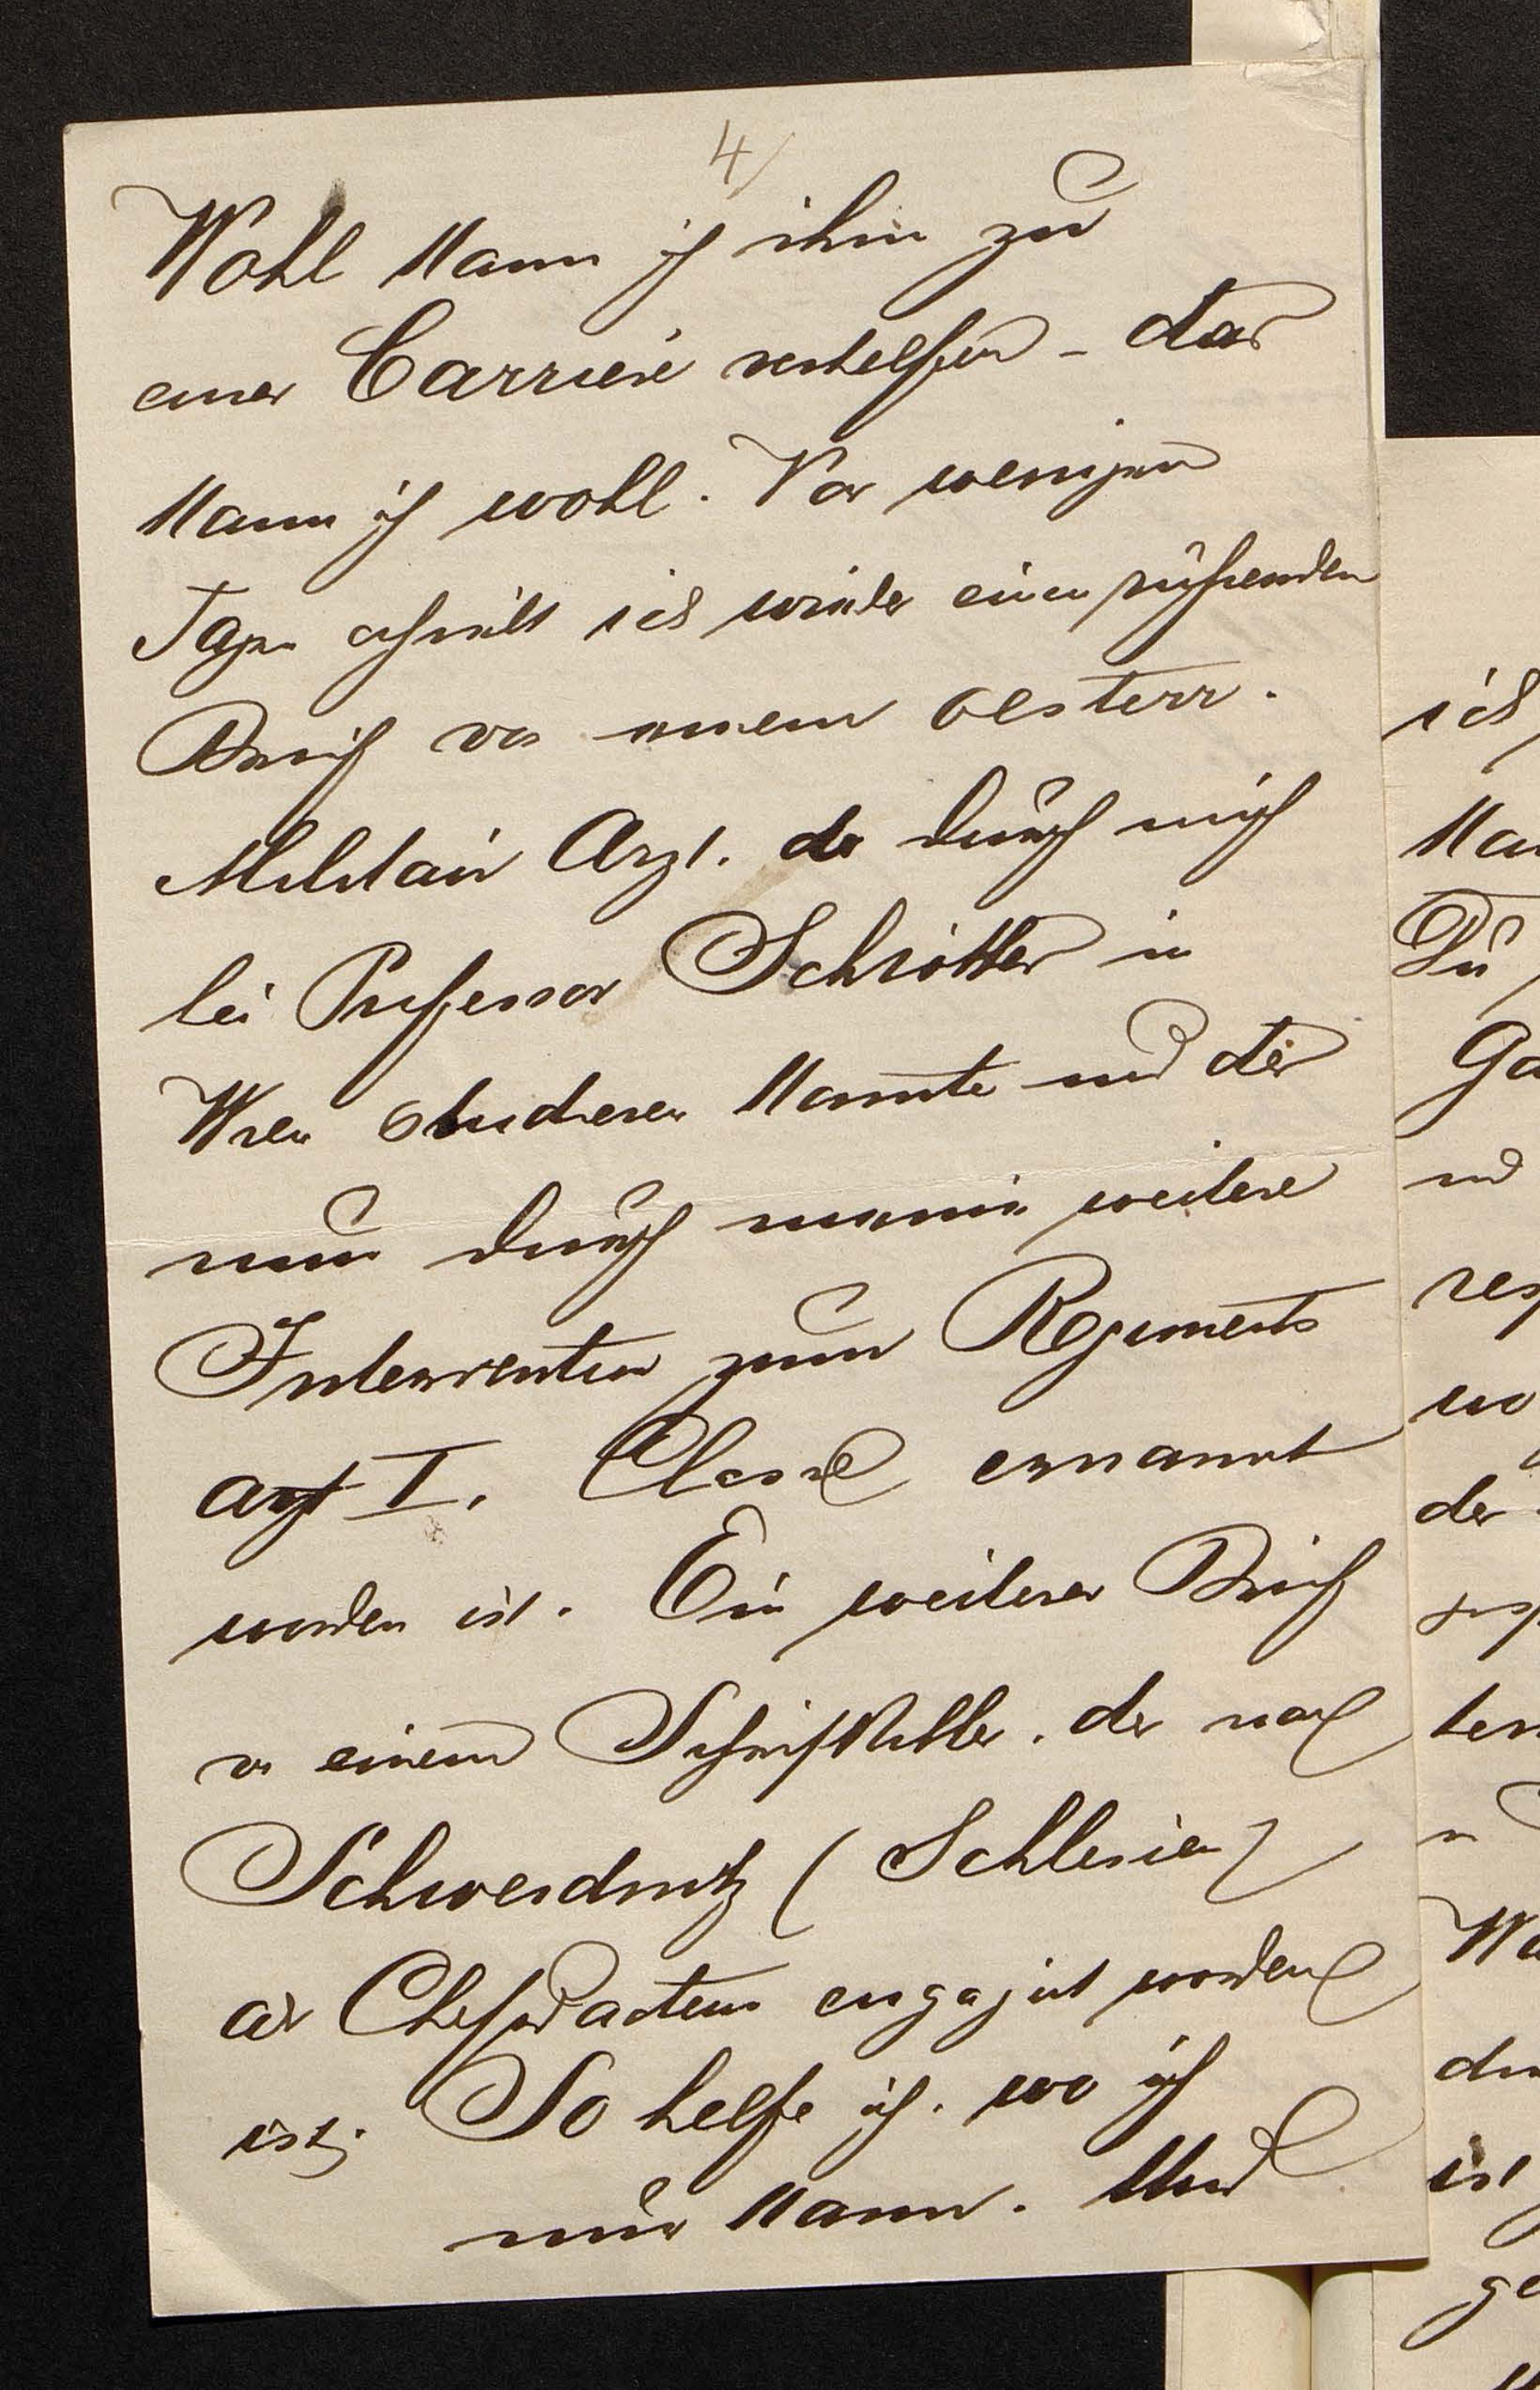 4/
Wohl kann ich ihm zu
einer Carriere verhelfen - das
kann ich wohl. Vor wenigen
Tagen erhielt ich wieder einen rührenden
Brief von einem oesterr.
Militair Arzt. der durch mich
bei Professor Schrötter in
Wien studieren konnte und der
nun durch meine weitere
Intervention zum Regiments
arzt I. Classe ernannt
worden ist. Ein weiterer Brief
von einem Schriftsteller. der nach
Schweidnitz (Schlesien)
als Chefredacteur engagirt worden
ist. So helfe ich. wo ich
nur kann. Und
ich
kan
Du
Ga
und
res
wo
der
ist
ge